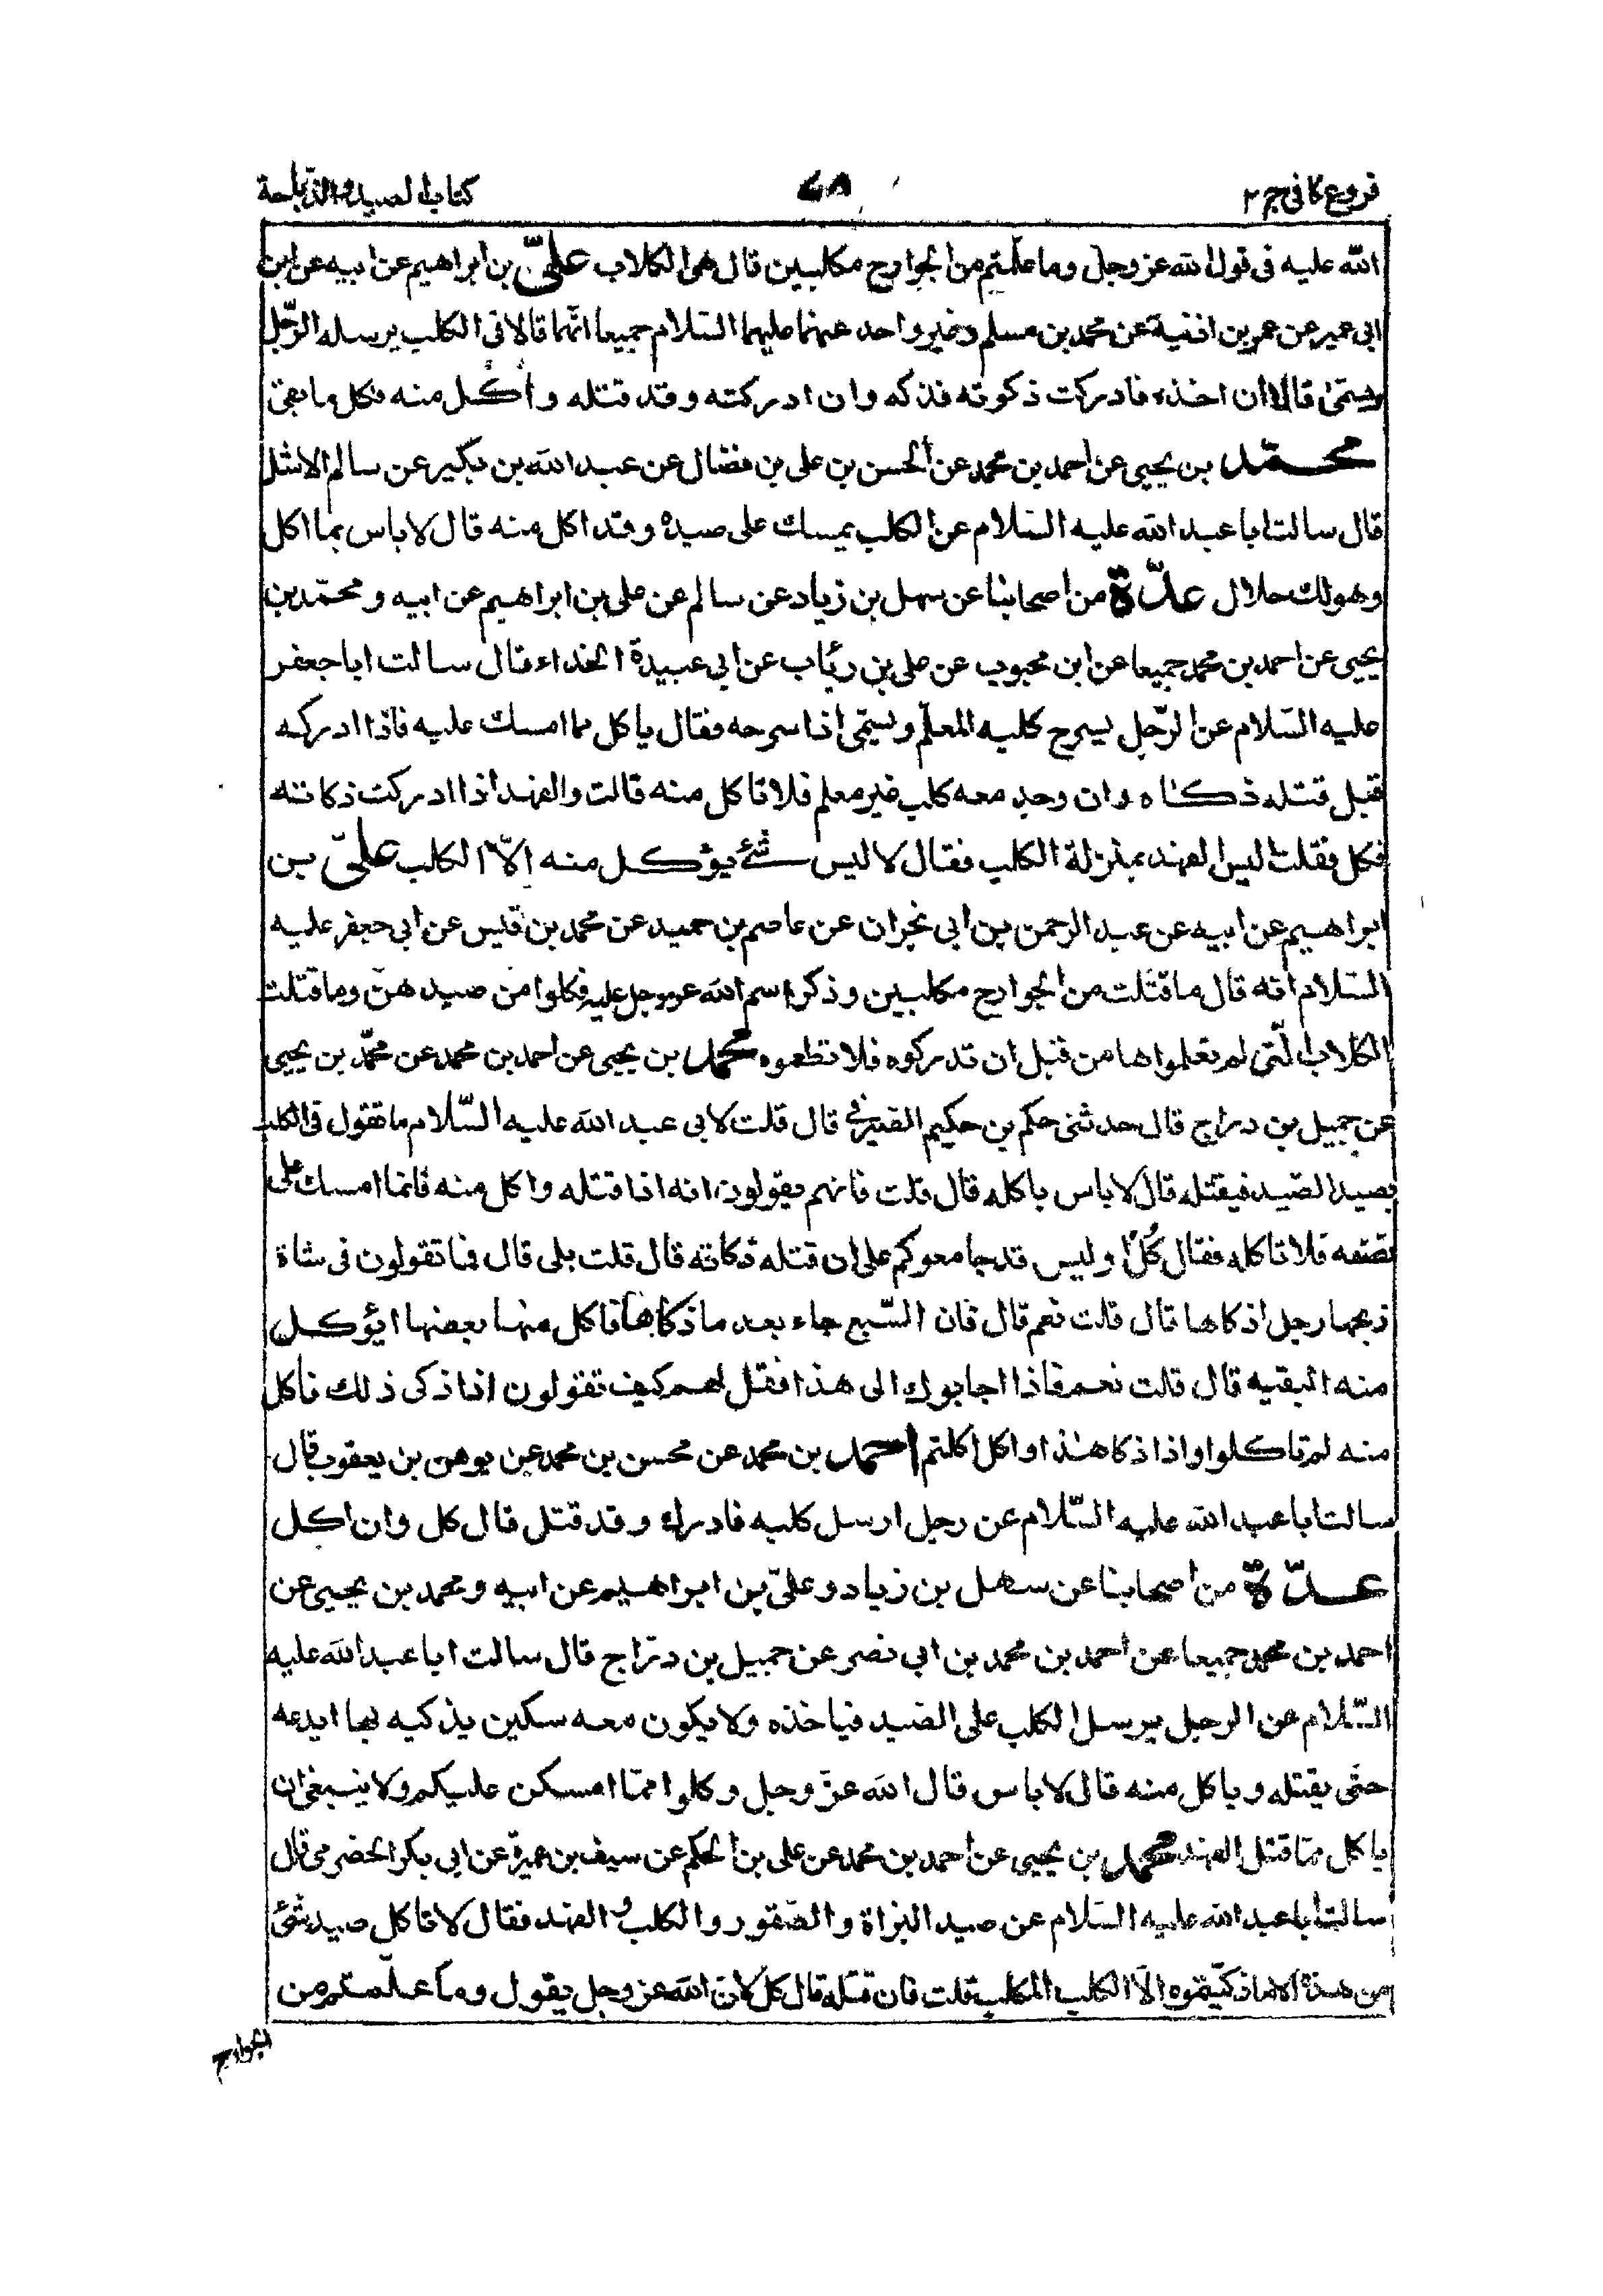 فروع كافى ج ٢
كتاب الصيد والذبايحة
الله عليه فى قول الله عز وجل وما علّمتم من الجوارح مكلبين قال هى الكلاب علىّ بن ابراهيم عن ابيه عن ابن
ابى عمير عن عمر بن اذنية عن محمد بن مسلم وغير واحد عنهما عليهما السّلام جميعا انّهما قالا فى الكلب يرسله الرّجل
ويسمّى قالا ان اخذه فادركت ذكوته فذكه وان ادركته وقد قتله واكل منه فكل ما بقى
محمّد بن يحيى عن احمد بن محمد عن الحسن بن على بن فضال عن عبد الله بن بكير عن سالم الاشل
قال سالت ابا عبد الله عليه السّلام عن الكلب يمسك على صيده وقد اكل منه قال لا باس بما اكل
وهو لك حلال عدّة من اصحابنا عن سهل بن زياد عن سالم عن على بن ابراهيم عن ابيه ومحمّد بن
يحيى عن احمد بن محمد جميعا عن ابن محبوب عن على بن رئاب عن ابى عبيدة الحذاء قال سالت ابا جعفر
عليه السّلام عن الرّجل يسرح كلبه المعلّم ويسمّى اذا سرحه فقال ياكل مما امسك عليه فاذا ادركه
قبل قتله ذكاه وان وجد معه كلب غير معلم فلا تاكل منه قالت والفهد اذا ادركت ذكاته
فكل فقلت اليس الفهد بمنزلة الكلب فقال لا ليس شئ يؤكل منه الّا الكلب علىّ بن
ابراهيم عن ابيه عن عبد الرحمن بن ابى نجران عن عاصم بن حميد عن محمد بن قيس عن ابى جعفر عليه
السّلام انه قال ما قتلت من الجوارح مكلبين وذكر اسم الله عز وجل عليه فكلوا من صيدهنّ وما قتلت
الكلاب الّتى لم تعلموها من قبل ان تدركوه فلا تطعموه محمد بن يحيى عن احمد بن محمد عن محمّد بن يحيى
عن جميل بن دراج قال حدثنى حكم بن حكيم الصيرفى قال قلت لابى عبد الله عليه السّلام ما تقول فى الكلب
يصيد الصّيد فيقتله قال لا باس باكله قال قلت فانهم يقولون انه اذا قتله واكل منه فانما امسك على
نفسه فلا تاكله فقال كُل وليس قد جامعوكم على ان قتله ذكاته قال قلت بلى قال فما تقولون فى شاة
ذبحها رجل اذكاها قال قلت نعم قال فان السّبع جاء بعد ما ذكاها فاكل منها بعضها ايؤكل
منه البقيه قال قلت نعم فاذا اجابوك الى هذا فقل لهم كيف تقولون اذا ذكى ذلك فاكل
منه لم تاكلوا واذا ذكا هذا واكل اكلتم احمد بن محمد عن محسن بن محمد عن يونس بن يعقوب قال
سالت ابا عبد الله عليه السّلام عن رجل ارسل كلبه فادركه وقد قتل قال كل وان اكل
عدّة من اصحابنا عن سهل بن زياد وعلىّ بن ابراهيم عن ابيه ومحمد بن يحيى عن
احمد بن محمد جميعا عن احمد بن محمد بن ابى نصر عن جميل بن درّاج قال سالت ابا عبد الله عليه
السّلام عن الرجل يرسل الكلب على الصّيد فياخذه ولا يكون معه سكين يذكيه بها ايدعه
حتّى يقتله وياكل منه قال لا باس قال الله عزّ وجل وكلوا ممّا امسكن عليكم ولا ينبغى ان
ياكل ممّا قتل الفهد محمد بن يحيى عن احمد بن محمد عن على بن الحكم عن سيف بن عميرة عن ابى بكر الحضرمى قال
سالت ابا عبد الله عليه السّلام عن صيد البزاة والصّقور والكلب والفهد فقال لا تاكل صيد شئ
من هذه الا ما ذكّيتموه الّا الكلب المكلب قلت فان قتله قال كل لان الله عز وجل يقول وما علّمتم من
الجوارح